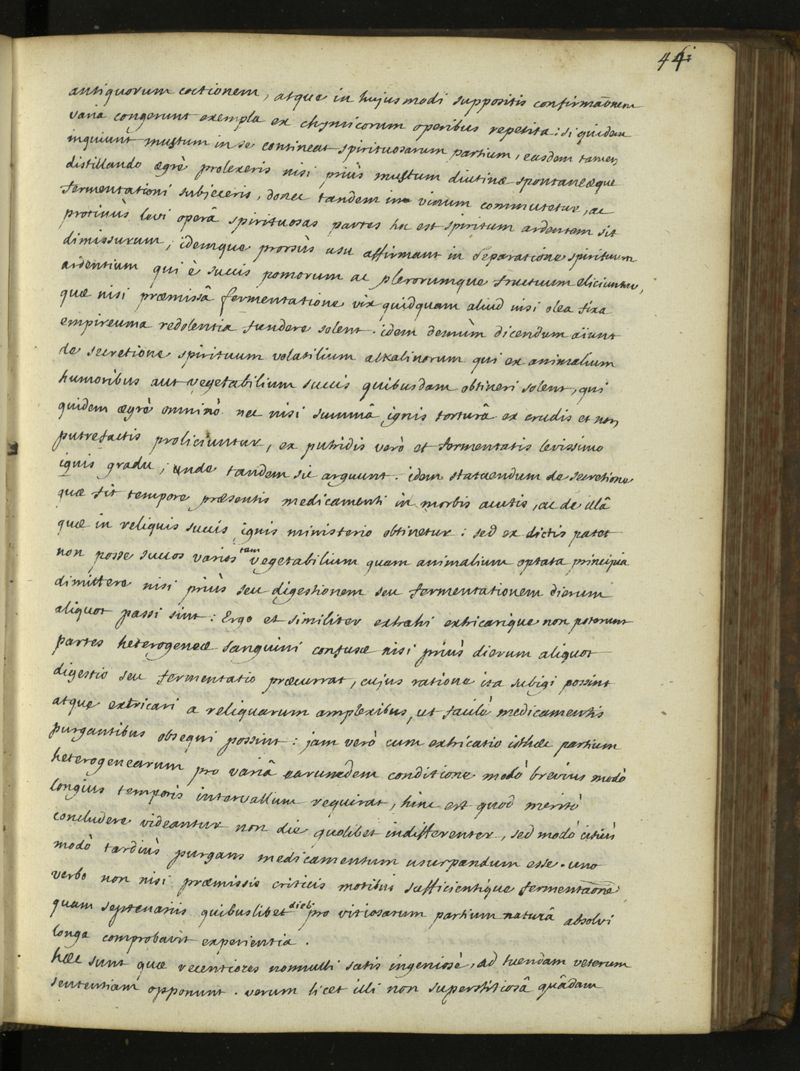 44i
antiquorum coctionem, atque in hujusmodi suppositis confirmaõnem
varia congerunt exempla ex chymicorum operibus repetita: siquidem
inquiunt mustum in se contineat spirituosarum partium, easdem tamen
distillando ægrè prolexeris nisi priùs mustum diutinæ spontaneæque
fermentationi subjeceris, donec tandem in vinum commutetur, ac
protinùs levi operâ spirituosas partes hoc est spiritum ardentem sit
dimissurum; idemque prorsùs usu affirmant in separatione spirituum
ardentium qui è succis pomorum ac plerorumque fructuum eliciuntur,
quæ nisi præmissâ fermentatione vix quidquam aliud nisi olea fixa
empireuma redolentia fundere solent. idem demùm dicendum aiunt
de secretione spirituum volatilium alkalinorum qui ex animalium
humoribus aut vegetabilium succis quibusdam obtineri solent, qui
quidem ægrè omninò nec nisi summâ ignis torturâ ex crudis et non
putrefactis proliciuntur, ex putridis verò et fermentatis levissimo
ignis gradu; unde tandem sic arguunt. idem statuendum de secretione
quæ fit tempore præsentis medicamenti in morbis acutis, ac de illâ
quæ in reliquis succis ignis ministerio obtinetur: sed ex dictis patet
non posse succos varios tam vegetabilium quam animalium optata principia
dimittere nisi priùs seu digestionem seu fermentationem dierum
aliquot passi sint: Ergo et similiter extrahi extricarique non poterunt
partes heterogeneæ sanguini confusæ nisi priùs dierum aliquot
digestio seu fermentatio præcurrat, cujus ratione ita subigi possint
atque extricari a reliquarum amplexibus, ut facilè medicamentis
purgantibus obsequi possint: jam verò cum extricatio isthæc partium
heterogenearum pro variâ earumdem conditione modò brevius modò
longius temporis intervallum requirat, hinc est quod meritò
concludere videantur non die quolibet indifferenter, sed modò citiùs
modò tardiùs purgans medicamentum usurpandum esse. uno
verbo non nisi præmissis criticis motibus sufficientique fermentaõne
quam septenariis quibuslibet dieb. pro vitiosarum partium naturâ absolvi
longa comprobavit experientia.
hæc sunt quæ recentiores nonnulli satis ingeniosè, ad tuendam veterum
sententiam opponunt. verum licet illi non superstitiosâ quâdam